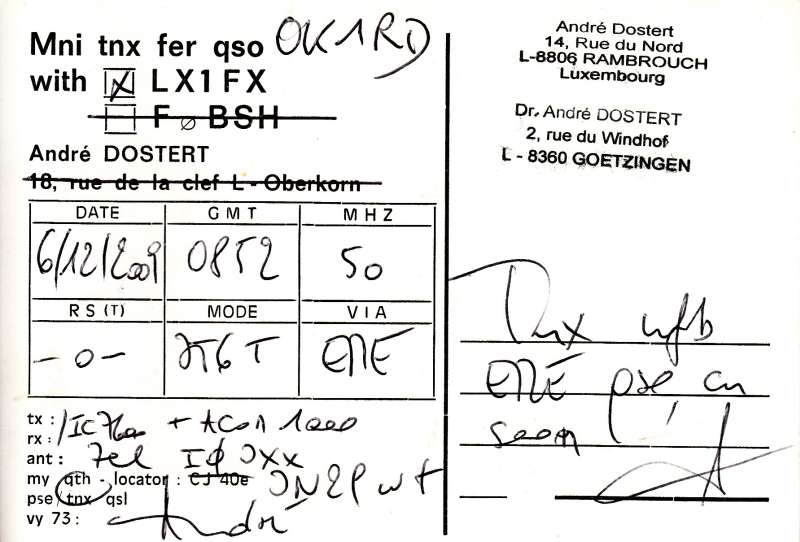 Mni tnx fer qso OK1RD
with ☒ LX1FX
☐ FøBSH
André DOSTERT
18, rue de la clef L - Oberkorn
DATE GMT MHZ
6/12/2009 0852 50
RS(T) MODE VIA
- 0 - JT6T EME
tx : IC7600 + ACOM 1000
rx :
ant : 7el IØJXX
my qth - locator : CJ 40e JN29wt
pse tnx qsl
vy 73 : André
André Dostert
14, Rue du Nord
L-8806 RAMBROUCH
Luxembourg
Dr. André DOSTERT
2, rue du Windhof
L - 8360 GOETZINGEN
Tnx ufb
EME pse cu
soon !